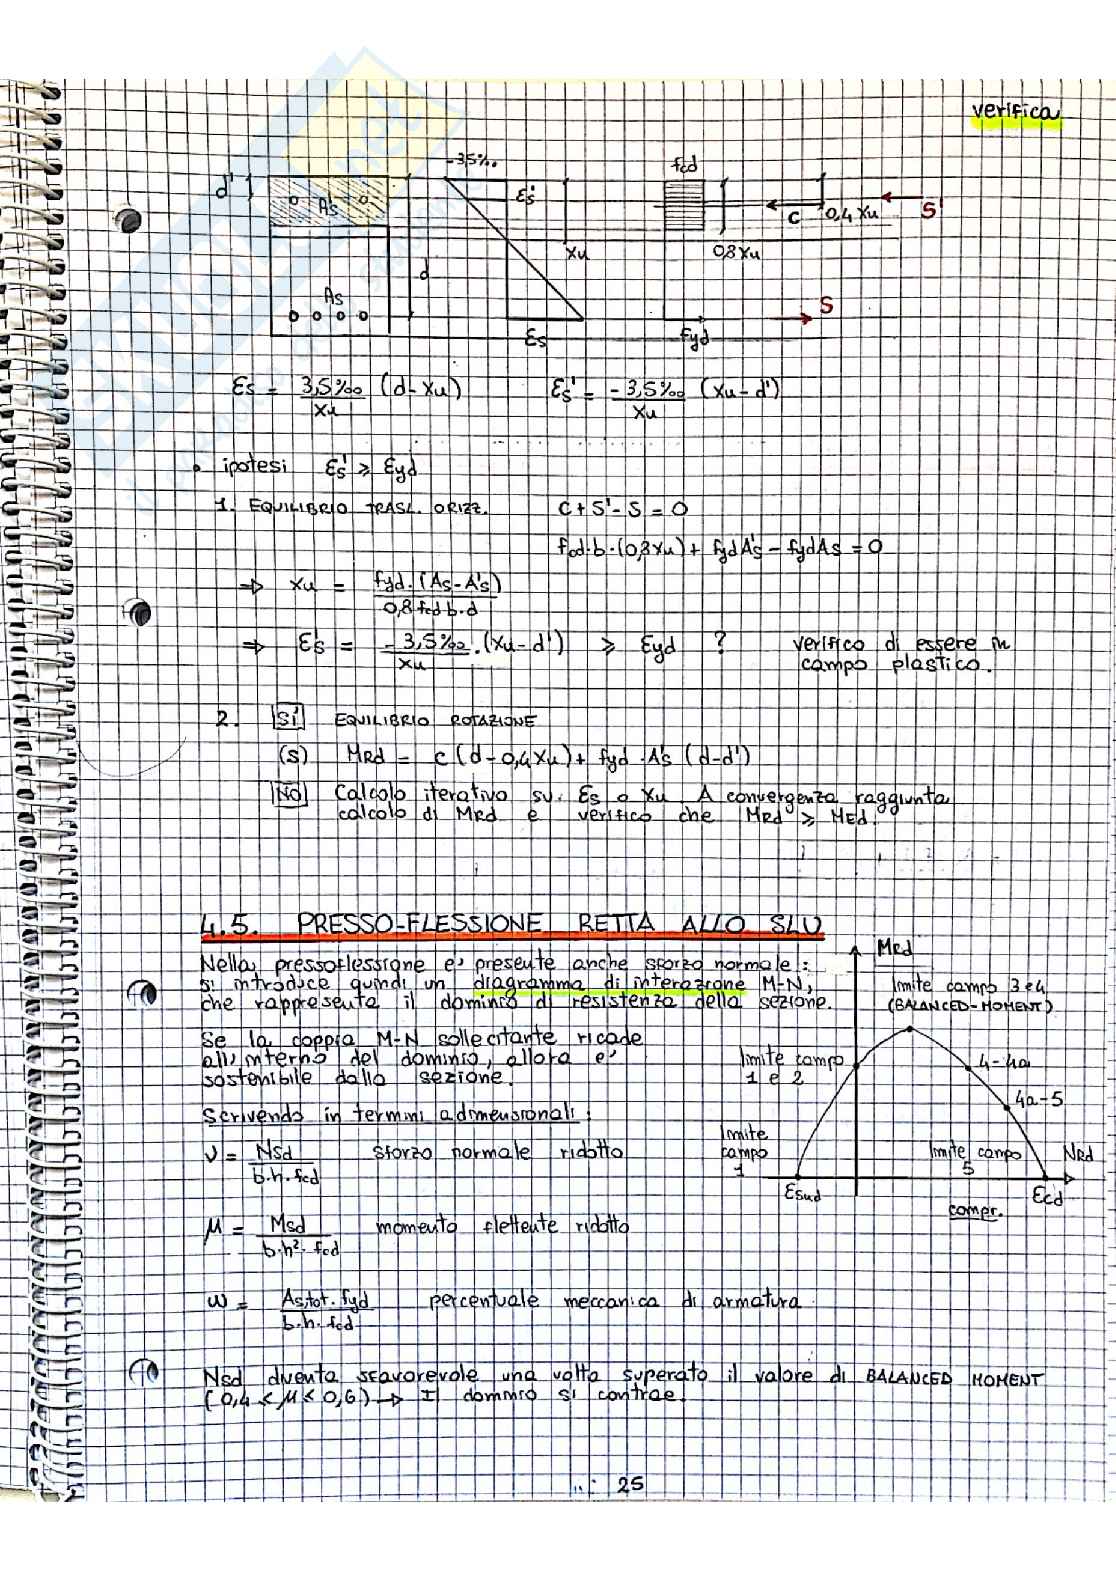 verifica
-3,5‰
fcd
d'
A's
ε's
C
0,4 Xu
S'
Xu
0,8 Xu
d
As
S
εs
fyd
εs = 3,5‰/Xu (d-Xu)    ε's = -3,5‰/Xu (Xu-d')
• ipotesi ε's ⩾ εyd
1. EQUILIBRIO TRASL. ORIZZ.    C + S' - S = 0
fcd·b·(0,8Xu) + fyd A's - fyd As = 0
⇒ Xu = fyd·(As-A's)/0,8 fcd·b·d
⇒ ε's = -3,5‰/Xu ·(Xu-d') ⩾ εyd ?    verifico di essere in
campo plastico.
2. SÌ EQUILIBRIO ROTAZIONE
(S) MRd = C(d-0,4Xu) + fyd·A's (d-d')
NO Calcolo iterativo su εs o Xu. A convergenza raggiunta
calcolo di MRd e verifico che MRd ⩾ MEd.
4.5. PRESSO-FLESSIONE RETTA ALLO SLU
Nella pressoflessione è presente anche sforzo normale:
si introduce quindi un diagramma di interazione M-N,
che rappresenta il dominio di resistenza della sezione.
Se la coppia M-N sollecitante ricade
all'interno del dominio, allora è
sostenibile dalla sezione.
Scrivendo in termini adimensionali:
ν = Nsd/b·h·fcd    sforzo normale ridotto
μ = Msd/b·h²·fcd    momento flettente ridotto
ω = As,tot·fyd/b·h·fcd    percentuale meccanica di armatura
MRd
limite campo 3 e 4
(BALANCED-MOMENT)
limite campo
1 e 2
4-4a
4a-5
limite
campo
1
limite campo
5
NRd
εsud
εcd
compr.
Nsd diventa sfavorevole una volta superato il valore di BALANCED MOMENT
(0,4 < μ < 0,6) → Il dominio si contrae.
25